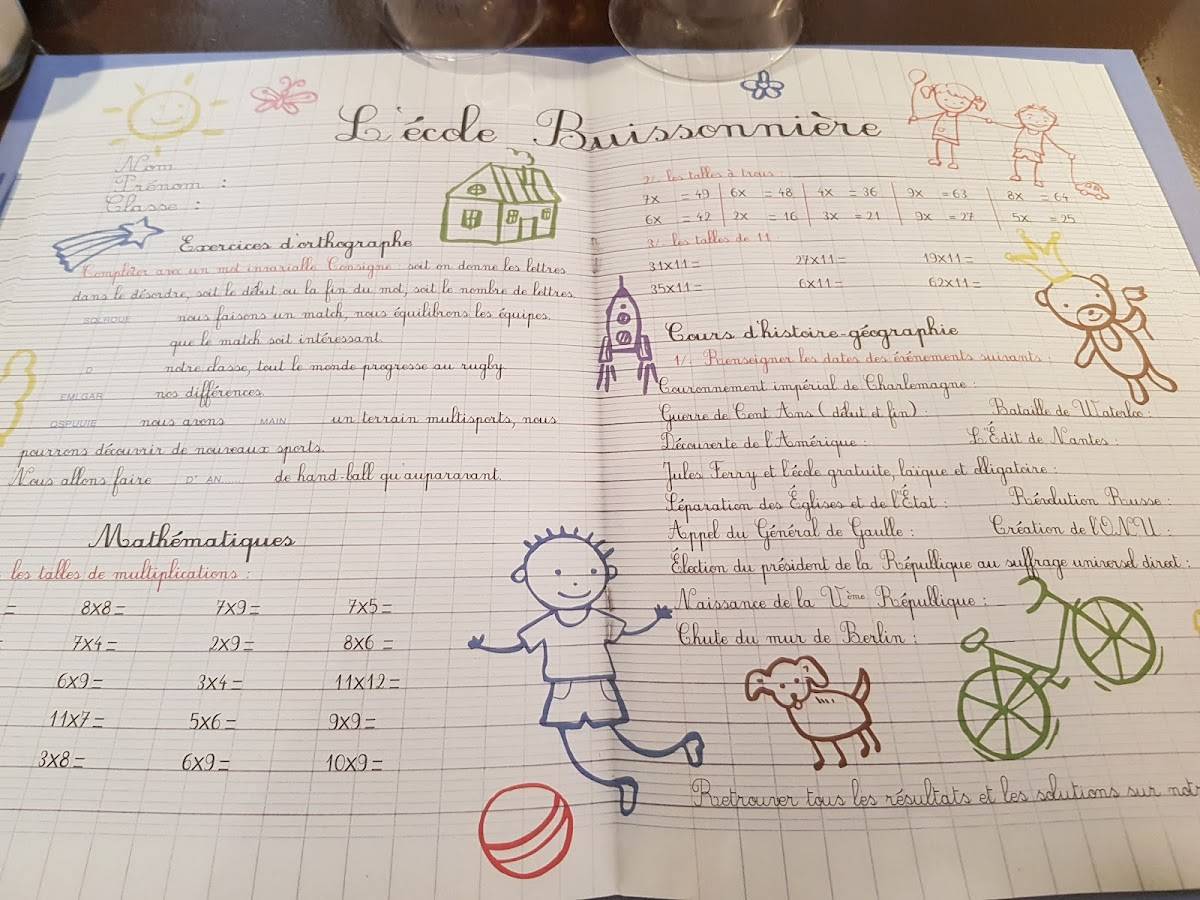 L'école Buissonnière
Nom
Prénom :
Classe :
Exercices d'orthographe
Compléter avec un mot invariable Consigne : soit on donne les lettres
dans le désordre, soit le début ou la fin du mot, soit le nombre de lettres.
nous faisons un match, nous équilibrons les équipes.
que le match soit intéressant.
D notre classe, tout le monde progresse au rugby
EMLGAR nos différences.
QSPUUIE nous avons MAIN un terrain multisports, nous
pourrons découvrir de nouveaux sports.
Nous allons faire D' AN...... de hand-ball qu'auparavant.
Mathématiques
les tables de multiplications :
= 8x8= 7x9= 7x5=
7x4= 2x9= 8x6 =
6x9= 3x4= 11x12=
11x7= 5x6= 9x9=
3x8= 6x9= 10x9=
2/. les tables à trous
7x = 49 6x = 48 4x = 36 9x = 63 8x = 64
6x = 42 2x = 16 3x = 21 9x = 27 5x = 25
3/. les tables de 11
31x11= 27x11= 19x11=
35x11= 6x11= 62x11=
Cours d'histoire-géographie
1/. Renseigner les dates des événements suivants :
Couronnement impérial de Charlemagne :
Guerre de Cent Ans ( début et fin ) : Bataille de Waterloo :
Découverte de l'Amérique : L'Édit de Nantes :
Jules Ferry et l'école gratuite, laïque et obligatoire :
Séparation des Églises et de l'État : Révolution Russe :
Appel du Général de Gaulle : Création de l'ONU :
Élection du président de la République au suffrage universel direct :
Naissance de la Vème République :
Chute du mur de Berlin :
Retrouver tous les résultats et les solutions sur notr